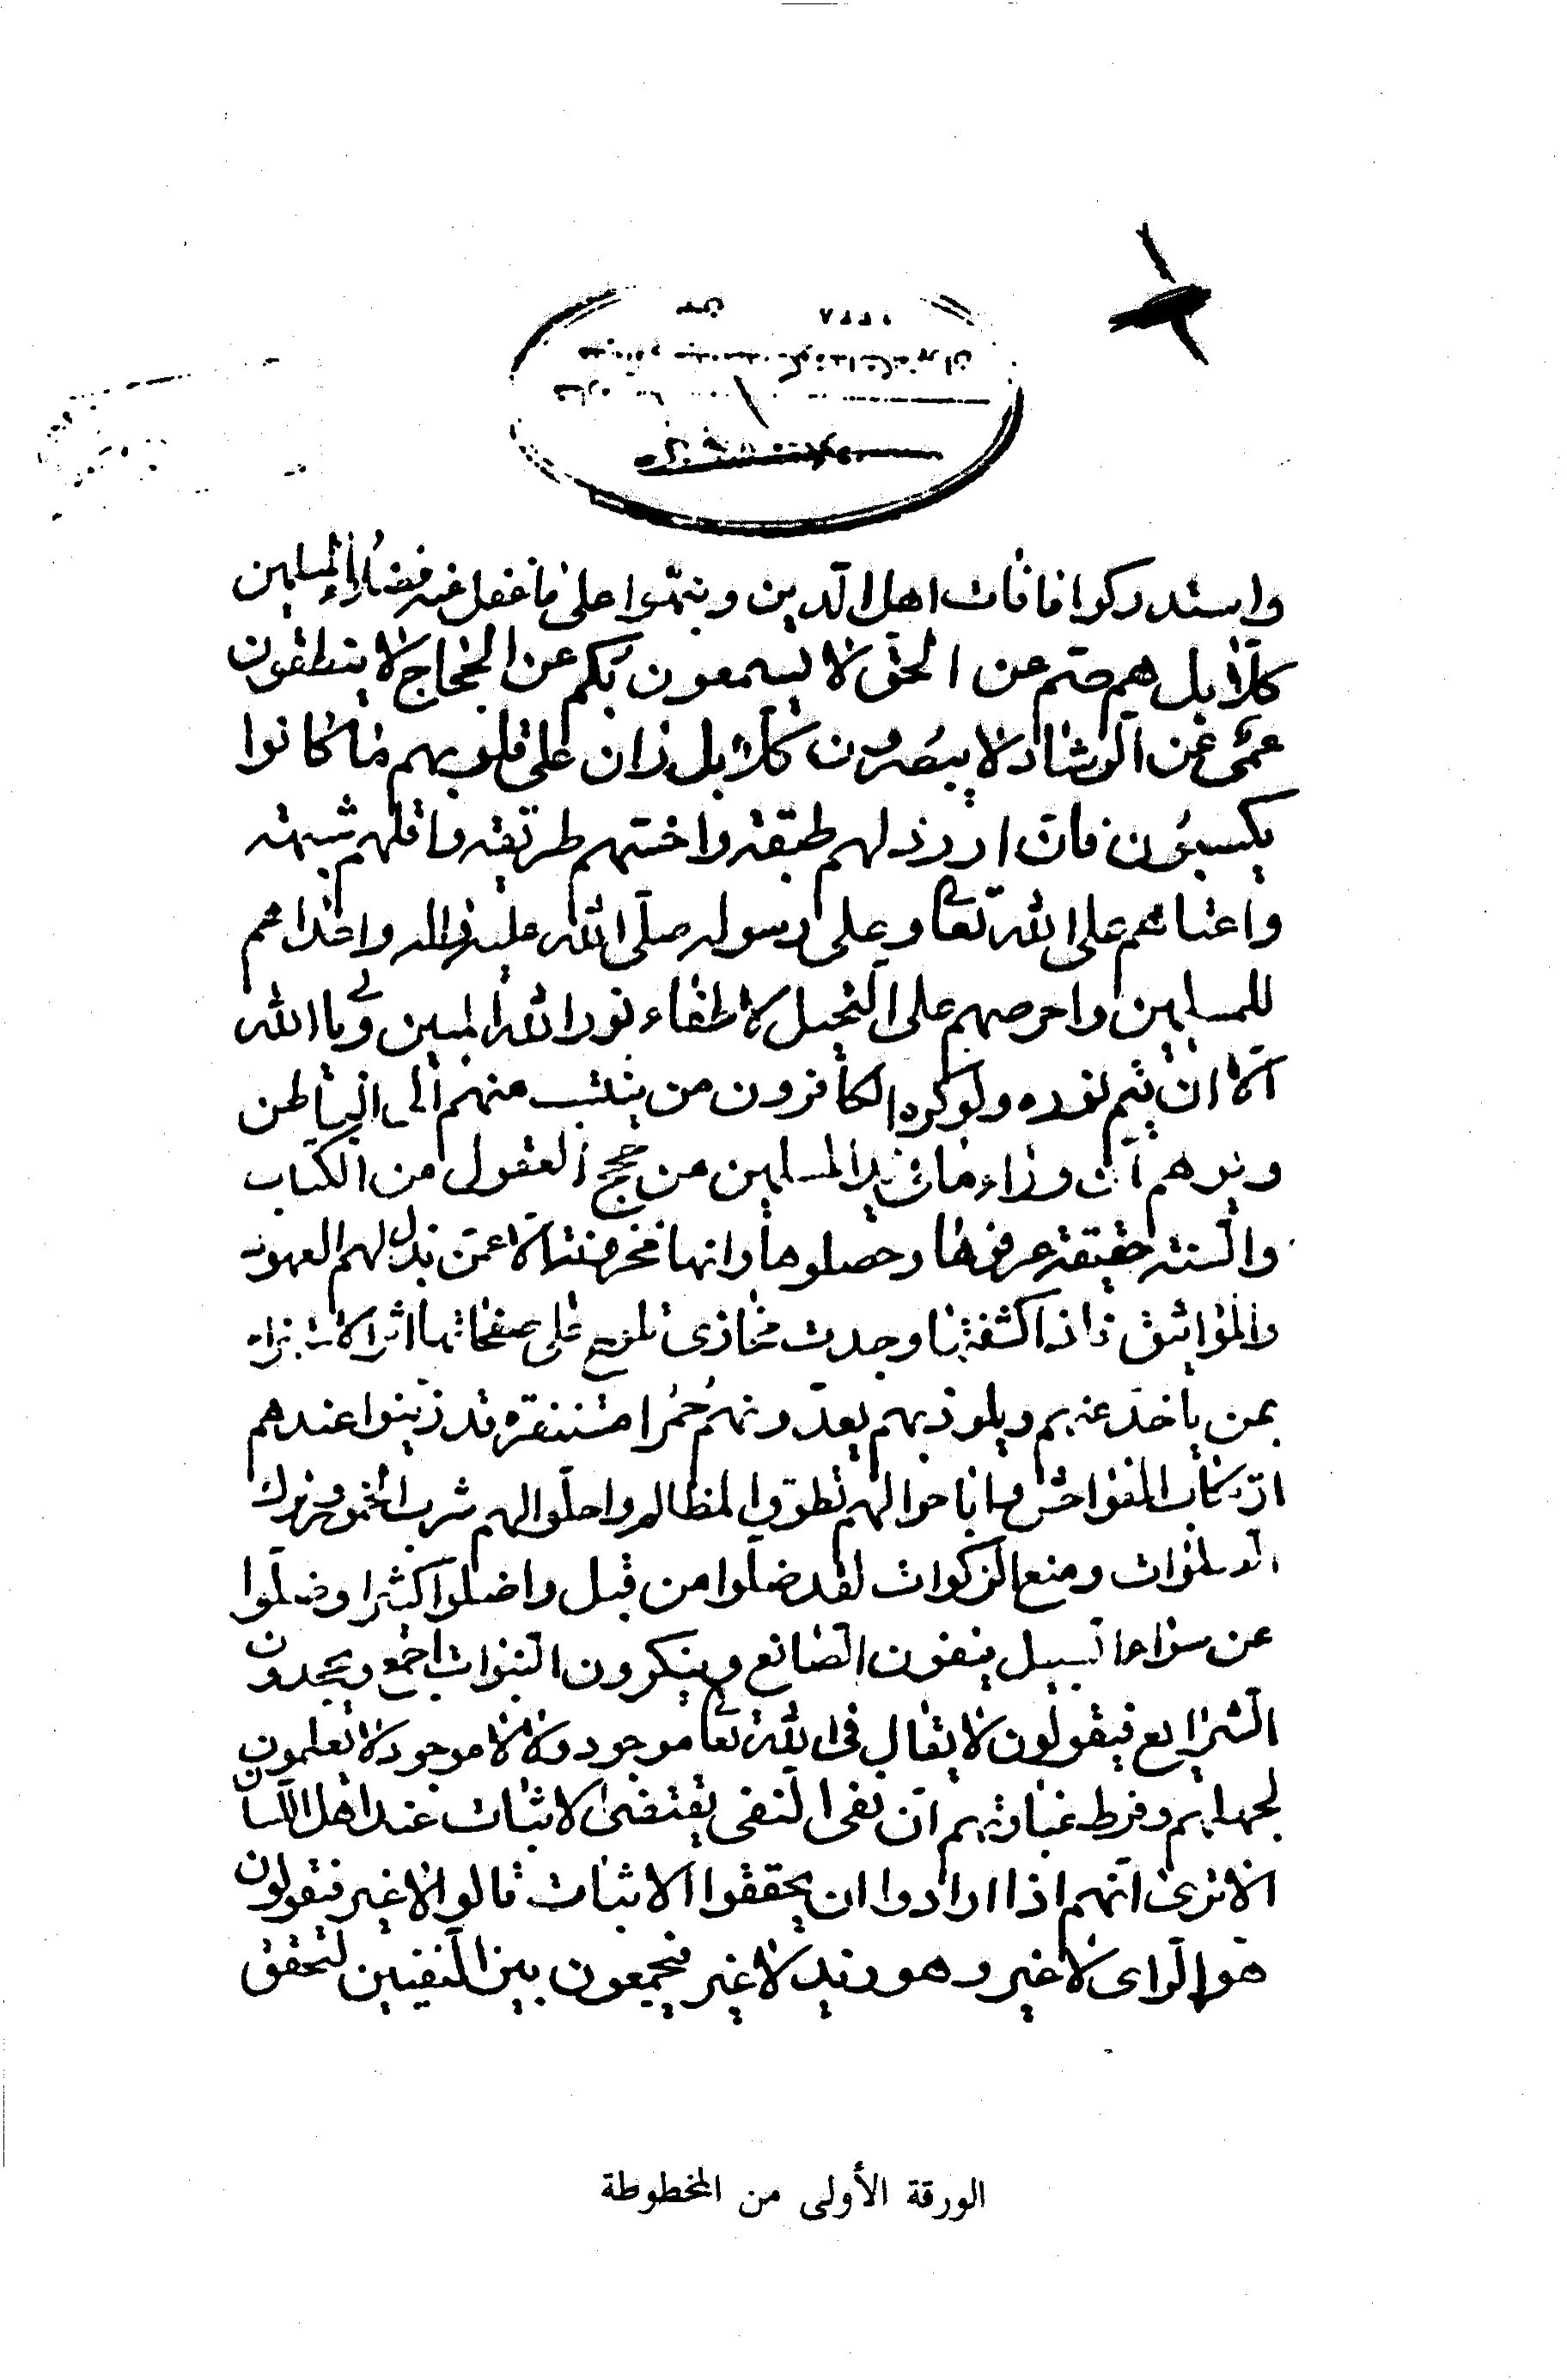 واستدركوا ما فات اهل الدين وتنبّهوا على ما غفل عنه فضلاء المسلمين
كلّا بل هم صمّ عن الحقّ لا يسمعون بكم عن الحجاج لا ينطقون
عمى عن الرشاد لا يبصرون كلّا بل ران على قلوبهم ما كانوا
يكسبون فان ارذلهم طبقة واخسّهم طريقة واقلهم شبهة
واعتاهم على الله تعا وعلى رسوله صلّى الله عليه واله واعداهم
للمسلمين واحرصهم على التحيل لاطفاء نور الله المبين ويابى الله
الّا ان يتم نوره ولو كره الكافرون من ينتسب منهم الى الباطن
ويوهم انّ وراء ما فى يد المسلمين من حجج العقول من الكتاب
والسنة حقيقة عرفوها وحصلوها وانها مخزونة الّا عمّن بذل لهم العهود
والمواثيق فاذا كشفتها وجدت مخازى تلوح على صفحاتها اثر الاستهزاء
بمن ياخذ عنهم ويلوذ بهم يعدّونهم حُمُرا مستنفرة قد زيّنوا عندهم
ارتكاب الفواحش واباحوا لهم تطوّق المظالم واحلّوا لهم شرب الخمور وترك
الصلوات ومنع الزكوات لقد ضلّوا من قبل واضلوا كثيرا وضلّوا
عن سواء السبيل ينفون الصّانع وينكرون النبوات اجمع ويجحدون
الشرايع فيقولون لا يقال فى الله تعا موجود ولا لا موجود لا يعلمون
لجهلهم وفرط غباوتهم ان نفى النفى يقتضى الاثبات عند اهل اللسان
الا ترى انهم اذا ارادوا ان يحققوا الاثبات قالوا لا غير فيقولون
هو الراى لا غير وهو زيد لا غير فيجمعون بين النفيين لتحقق
الورقة الأولى من المخطوطة